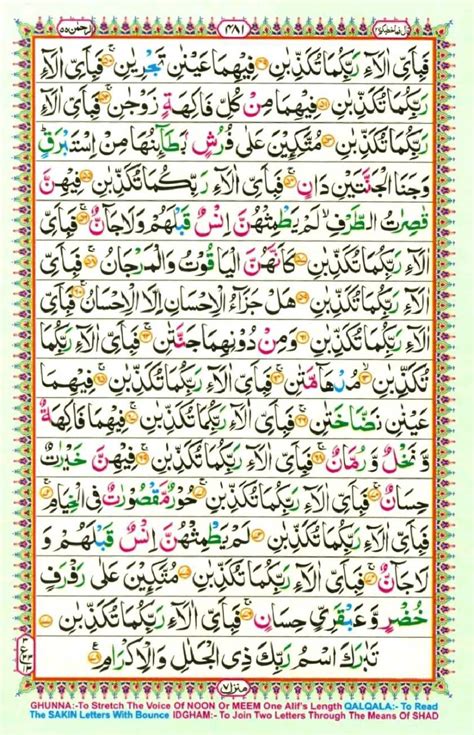 قال فما خطبكم ٢٧ ٤٨١ الرحمن ٥٥
فَبِاَىِّ اٰلَآءِ رَبِّكُمَا تُكَذِّبٰنِ ﴿٤٩﴾ فِيْهِمَا عَيْنٰنِ تَجْرِيٰنِ ﴿٥٠﴾ فَبِاَىِّ اٰلَآءِ
رَبِّكُمَا تُكَذِّبٰنِ ﴿٥١﴾ فِيْهِمَا مِنْ كُلِّ فَاكِهَةٍ زَوْجٰنِ ﴿٥٢﴾ فَبِاَىِّ اٰلَآءِ
رَبِّكُمَا تُكَذِّبٰنِ ﴿٥٣﴾ مُتَّكِئِيْنَ عَلٰى فُرُشٍۭ بَطَآئِنُهَا مِنْ اِسْتَبْرَقٍ
وَجَنَا الْجَنَّتَيْنِ دَانٍ ﴿٥٤﴾ فَبِاَىِّ اٰلَآءِ رَبِّكُمَا تُكَذِّبٰنِ ﴿٥٥﴾ فِيْهِنَّ
قٰصِرٰتُ الطَّرْفِ لَمْ يَطْمِثْهُنَّ اِنْسٌ قَبْلَهُمْ وَلَا جَآنٌّ ﴿٥٦﴾ فَبِاَىِّ
اٰلَآءِ رَبِّكُمَا تُكَذِّبٰنِ ﴿٥٧﴾ كَاَنَّهُنَّ الْيَاقُوْتُ وَالْمَرْجَانُ ﴿٥٨﴾ فَبِاَىِّ
اٰلَآءِ رَبِّكُمَا تُكَذِّبٰنِ ﴿٥٩﴾ هَلْ جَزَآءُ الْاِحْسَانِ اِلَّا الْاِحْسَانُ ﴿٦٠﴾
فَبِاَىِّ اٰلَآءِ رَبِّكُمَا تُكَذِّبٰنِ ﴿٦١﴾ وَمِنْ دُوْنِهِمَا جَنَّتٰنِ ﴿٦٢﴾ فَبِاَىِّ اٰلَآءِ رَبِّكُمَا
تُكَذِّبٰنِ ﴿٦٣﴾ مُدْهَآمَّتٰنِ ﴿٦٤﴾ فَبِاَىِّ اٰلَآءِ رَبِّكُمَا تُكَذِّبٰنِ ﴿٦٥﴾ فِيْهِمَا
عَيْنٰنِ نَضَّاخَتٰنِ ﴿٦٦﴾ فَبِاَىِّ اٰلَآءِ رَبِّكُمَا تُكَذِّبٰنِ ﴿٦٧﴾ فِيْهِمَا فَاكِهَةٌ
وَّ نَخْلٌ وَّ رُمَّانٌ ﴿٦٨﴾ فَبِاَىِّ اٰلَآءِ رَبِّكُمَا تُكَذِّبٰنِ ﴿٦٩﴾ فِيْهِنَّ خَيْرٰتٌ
حِسَانٌ ﴿٧٠﴾ فَبِاَىِّ اٰلَآءِ رَبِّكُمَا تُكَذِّبٰنِ ﴿٧١﴾ حُوْرٌ مَّقْصُوْرٰتٌ فِى الْخِيَامِ ﴿٧٢﴾
فَبِاَىِّ اٰلَآءِ رَبِّكُمَا تُكَذِّبٰنِ ﴿٧٣﴾ لَمْ يَطْمِثْهُنَّ اِنْسٌ قَبْلَهُمْ وَ
لَا جَآنٌّ ﴿٧٤﴾ فَبِاَىِّ اٰلَآءِ رَبِّكُمَا تُكَذِّبٰنِ ﴿٧٥﴾ مُتَّكِئِيْنَ عَلٰى رَفْرَفٍ
خُضْرٍ وَّ عَبْقَرِىٍّ حِسَانٍ ﴿٧٦﴾ فَبِاَىِّ اٰلَآءِ رَبِّكُمَا تُكَذِّبٰنِ ﴿٧٧﴾
تَبٰرَكَ اسْمُ رَبِّكَ ذِى الْجَلٰلِ وَالْاِكْرَامِ ﴿٧٨﴾
منزل ٧
GHUNNA:-To Stretch The Voice Of NOON Or MEEM One Alif's Length QALQALA:- To Read
The SAKIN Letters With Bounce IDGHAM:- To Join Two Letters Through The Means Of SHAD